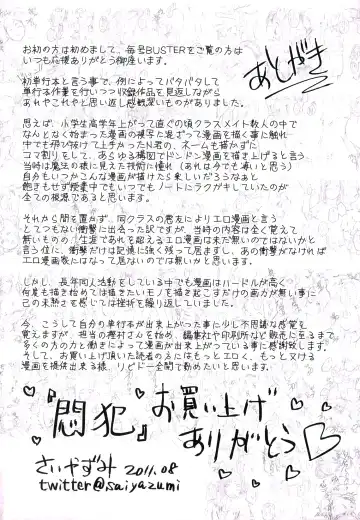 あとがき
お初の方は初めまして、毎号BUSTERをご覧の方は
いつも応援ありがとう御座います。
初単行本と言う事で、例によってバタバタして
単行本作業を行いつつ収録作品を見返しながら
あれやこれやと思い返し感慨深いものがありました。
思えば、小学生高学年上がって直ぐの頃クラスメイト数人の中で
なんとなく始まった漫画の模写に混ざって漫画を描く事に触れ
中でも飛び抜けて上手かったN君の、ネームも描かずに
コマ割りをして、あらゆる構図でドンドン漫画を描き上げると言う
当時は魔法の様に見えた技術に憧れ(あれは今でも凄いと思う)
自分もいつかこんな漫画が描けたら楽しいだろうなぁと
飽きもせず授業中でもいつでもノートにラクガキしていたのが
全ての根源であると思います。
それから間を置かず、同クラスの悪友によりエロ漫画と言う
とてつもない衝撃に出会った訳ですが、当時の内容は全く覚えて
無いものの、生涯であれを超えるエロ漫画は未だ無いのではないかと
言う位に、衝撃だけは記憶に強く残って居ますし、あの衝撃がなければ
エロ漫画家にはなって居ないのでは無いかと思います。
しかし、長年同人活動をしている中でも漫画はハードルが高く
何度も描き始めては描きたいモノを描き起こすだけの画力が無い事に
己の未熟さを感じては挫折を繰り返していました。
今、こうして自分の単行本が出来上がった事に少し不思議な感覚を
覚えますが、担当の種村さんを始め、編集社や印刷所など販売に至るまで
多くの方の力と働きによって漫画が出来上がっている事に感謝致します。
そして、お買い上げ頂いた読者の人にはもっとエロく、もっと又ける
漫画を提供出来る様、リビドー全開で勤めたいと思います。
『悶犯』お買い上げ
ありがとう
さいやずみ 2011.08
twitter@saiyazumi